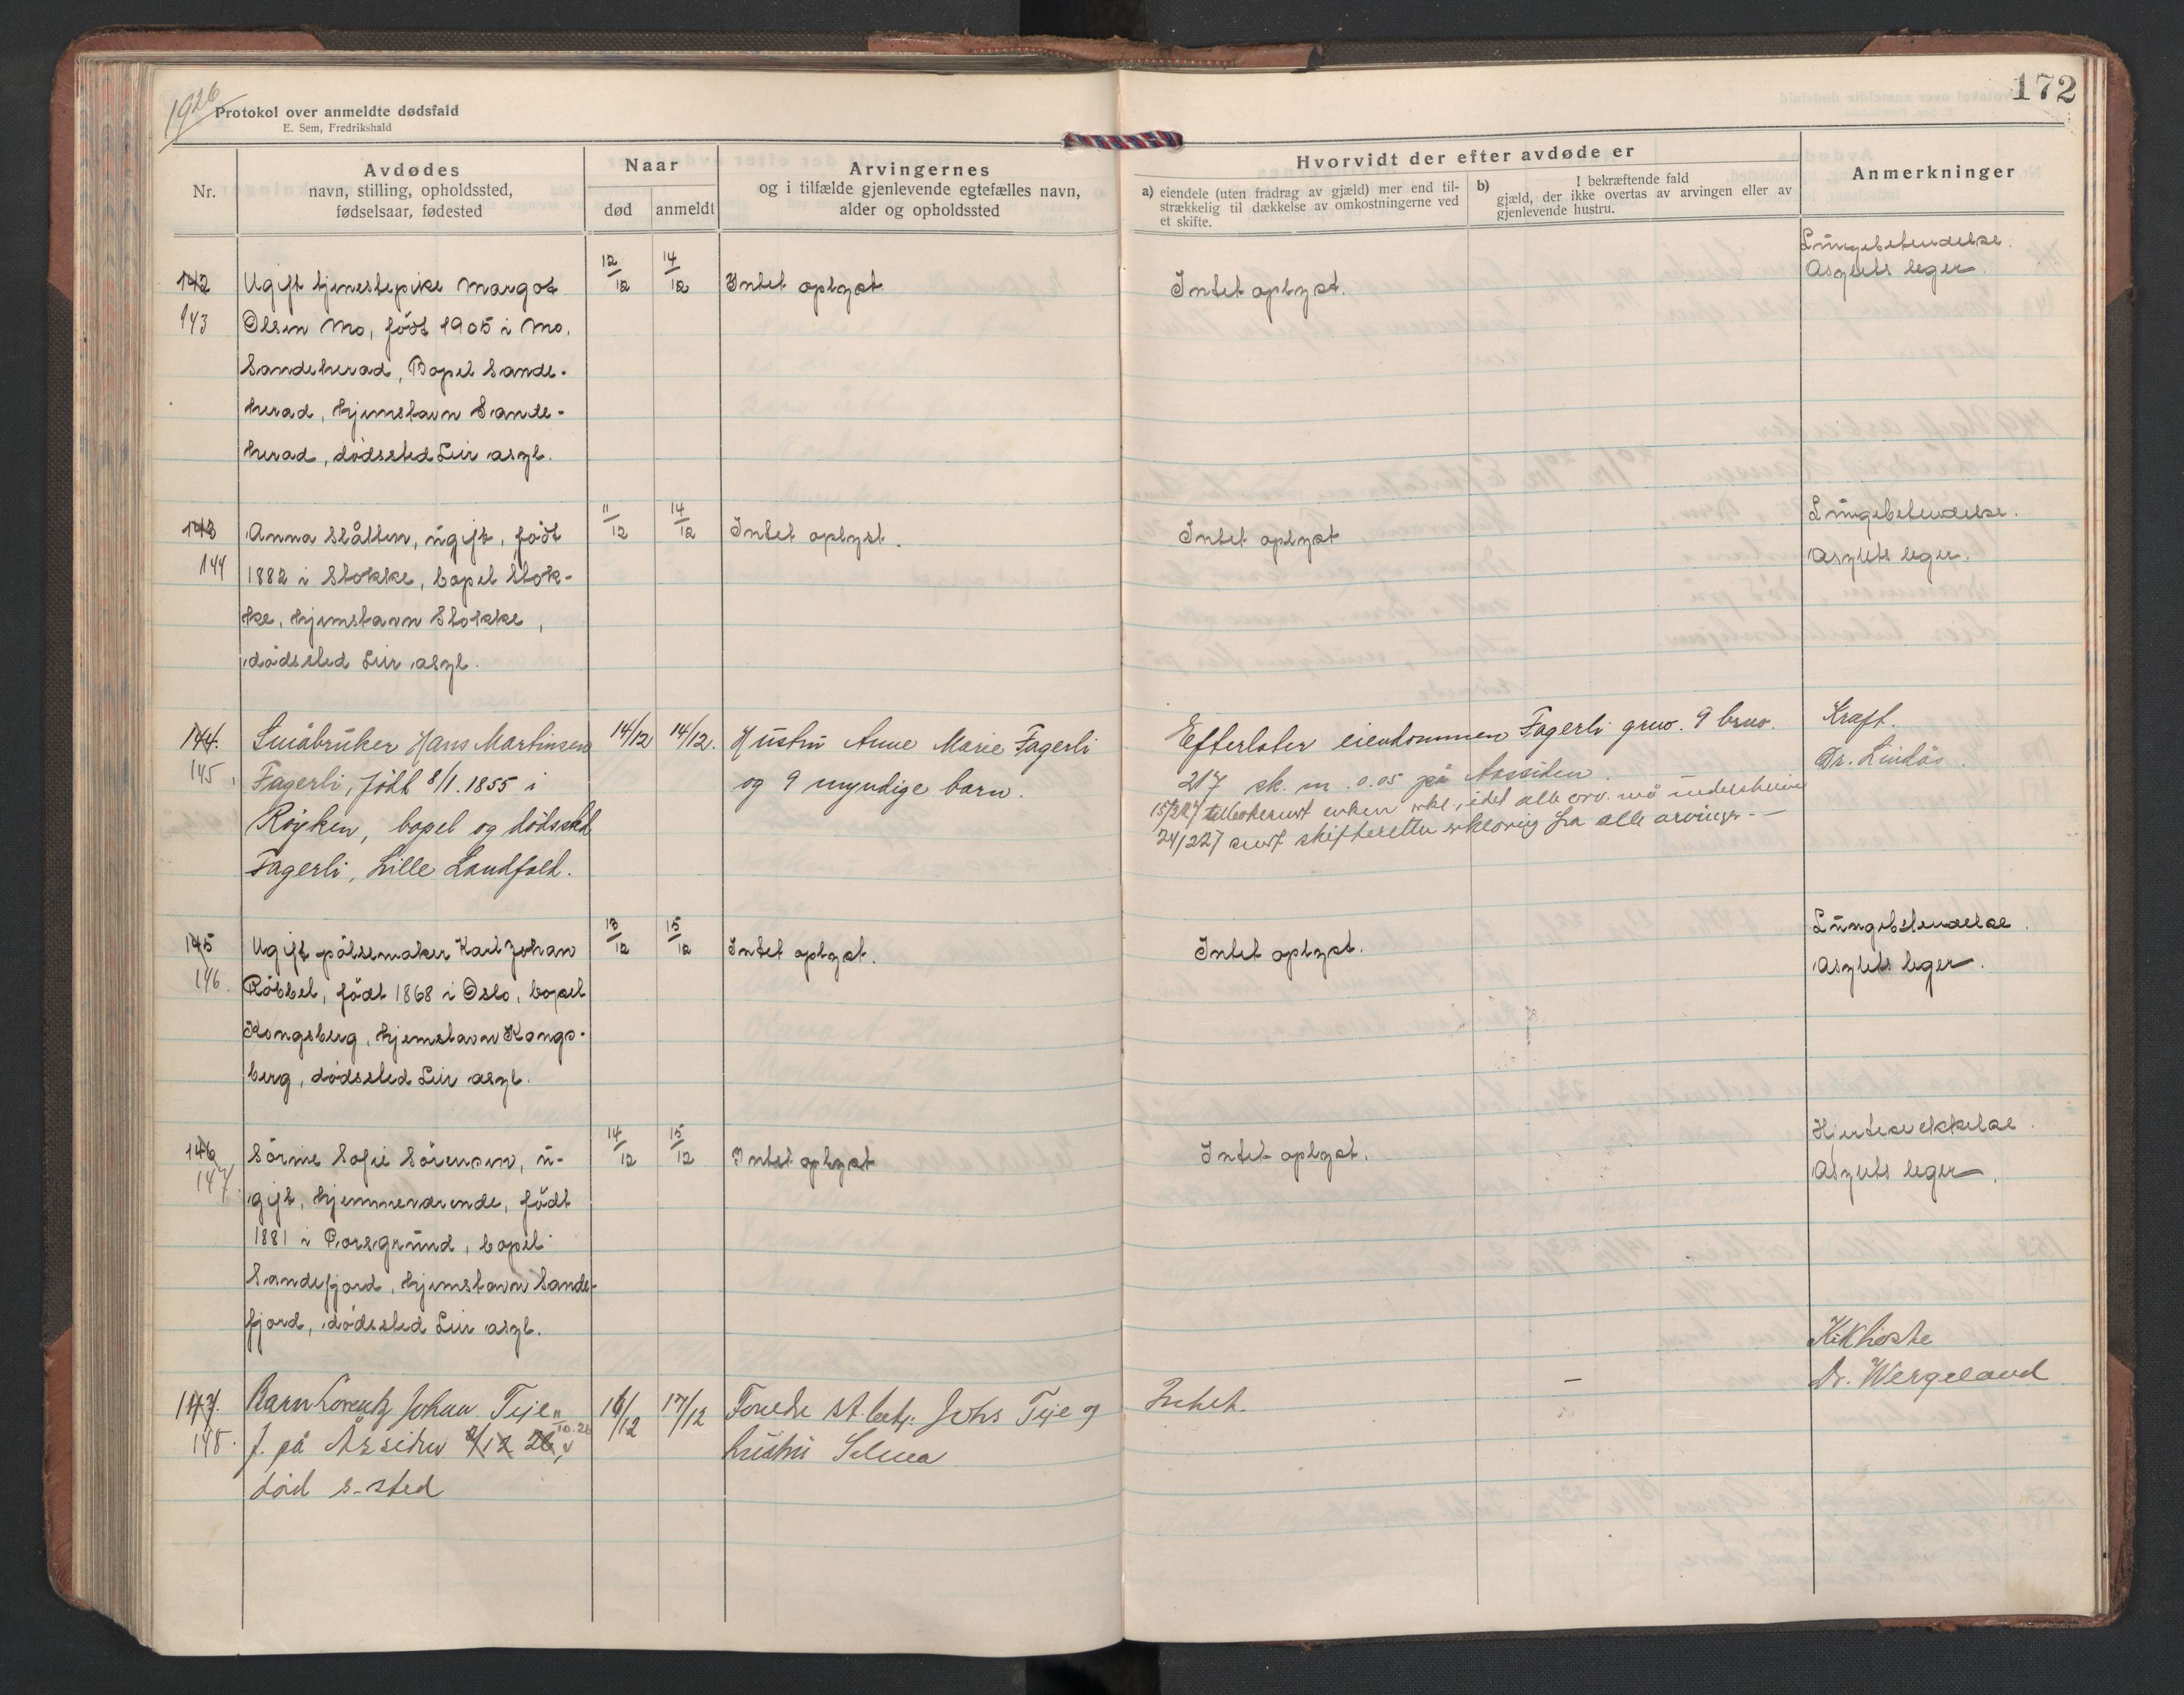 1926
Protokol over anmeldte dødsfald
E. Sem, Fredrikshald
172
Nr.
Avdødes
navn, stilling, opholdssted,
fødselsaar, fødested
Naar
død
anmeldt
Arvingernes
og i tilfælde gjenlevende egtefælles navn,
alder og opholdssted
Hvorvidt der efter avdøde er
a) eiendele (uten fradrag av gjæld) mer end til-
strækkelig til dækkelse av omkostningerne ved
et skifte.
b) I bekræftende fald
gjæld, der ikke overtas av arvingen eller av
gjenlevende hustru.
Anmerkninger
142
143
Ugift tjenestepike Margot
Olsen Mo, født 1905 i Mo,
Sandeherad, Bopel Sande-
herad, hjemstavn Sande-
herad, dødssted Lier asyl.
12/12
14/12
Intet oplyst
Intet oplyst.
Lungebetendelse.
Asylets leger.
143
144
Anna Slåtten, ugift, født
1882 i Stokke, bopel Stok-
ke, hjemstavn Stokke,
dødssted Lier asyl.
11/12
14/12
Intet oplyst.
Intet oplyst
Lungebetendelse.
Asylets leger.
144.
145
Småbruker Hans Martinsen
Fagerli, født 8/1.1855 i
Røyken, bopel og dødssted
Fagerli, Lille Landfald.
14/12
14/12.
Hustru Anne Marie Fagerli
og 9 myndige barn.
Efterlater eiendommen Fagerli grno. 9 brno.
217 sk. m. 0.05 på Aassiden.
15/227 enken erkl., idet alle arv. må
24/227 sendt skifteretten erklæring fra alle arvinger. -
Kraft.
Dr. Lindøs.
145
146.
Ugift pølsemaker Karl Johan
Röbbel, født 1868 i Oslo, bopel
Kongsberg, hjemstavn Kongs-
berg, dødssted Lier asyl.
13/12
15/12
Intet oplyst.
Intet oplyst.
Lungebetendelse.
Asylets leger.
146
147.
Sörine Sofie Sörensen, u-
gift, hjemmeværende, født
1881 i Porsgrund, bopel
Sandefjord, hjemstavn Sande-
fjord, dødssted Lier asyl.
14/12
15/12
Intet oplyst
Intet oplyst.
Hjertesvekkelse.
Asylets leger.
147.
148.
Barn Lorentz Johan Teje
f. på Åssiden 2/12 26, 11/10.26
død s. sted
16/12
17/12
Foreldre st.betj. Johs Teje og
hustru Selma
Intet.
-
Kikhoste
Dr. Wergeland